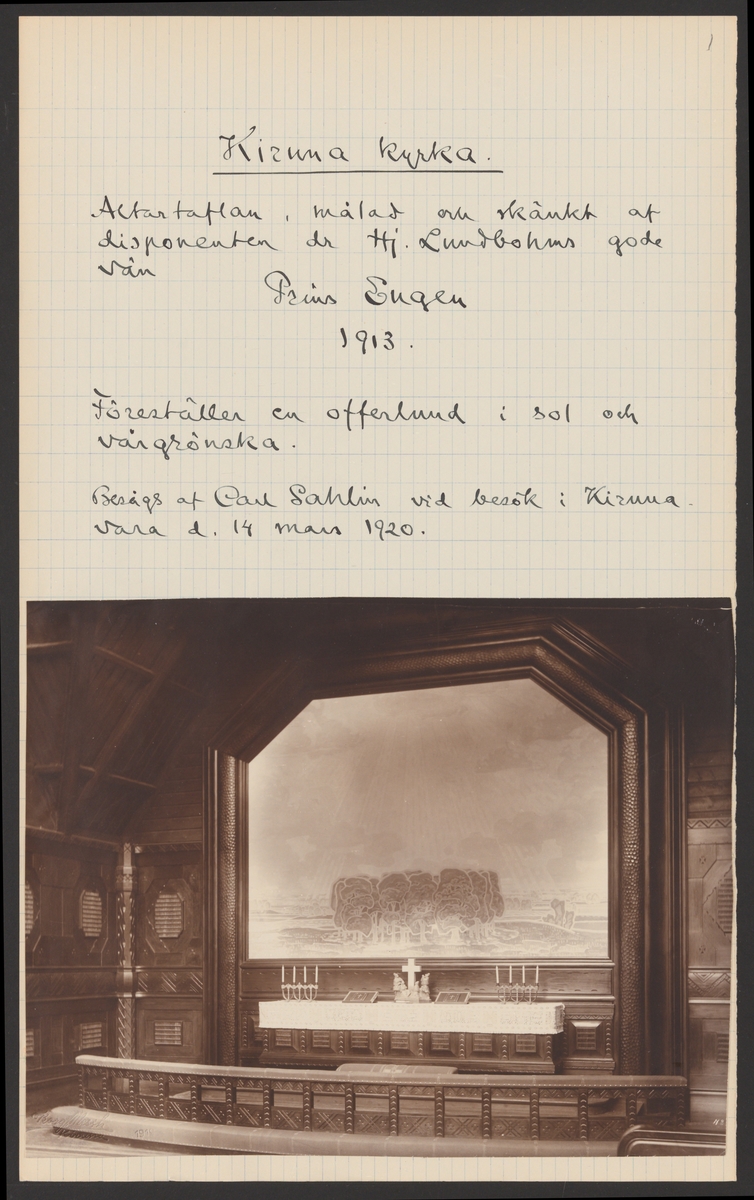 1
Kiruna kyrka.
Altartaflan, målad och skänkt af
disponenten dr Hj. Lundbohms gode
vän
Prins Eugen
1913.
Föreställer en offerlund i sol och
vårgrönska.
Besågs af Carl Sahlin vid besök i Kiruna-
vara d. 14 mars 1920.